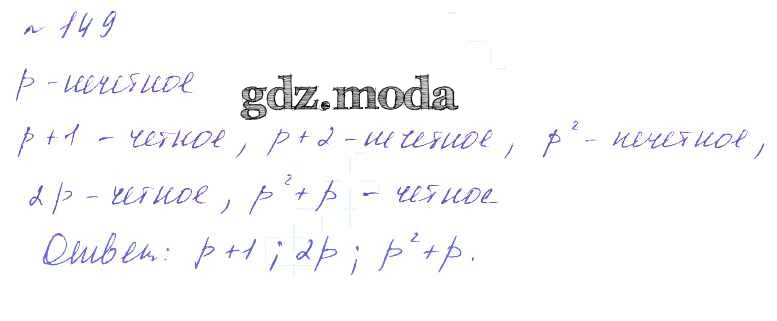 № 149
p - нечетное
gdz.moda
p+1 - четное, p+2 - нечетное, p² - нечетное,
2p - четное, p²+p - четное
Ответ: p+1; 2p; p²+p.